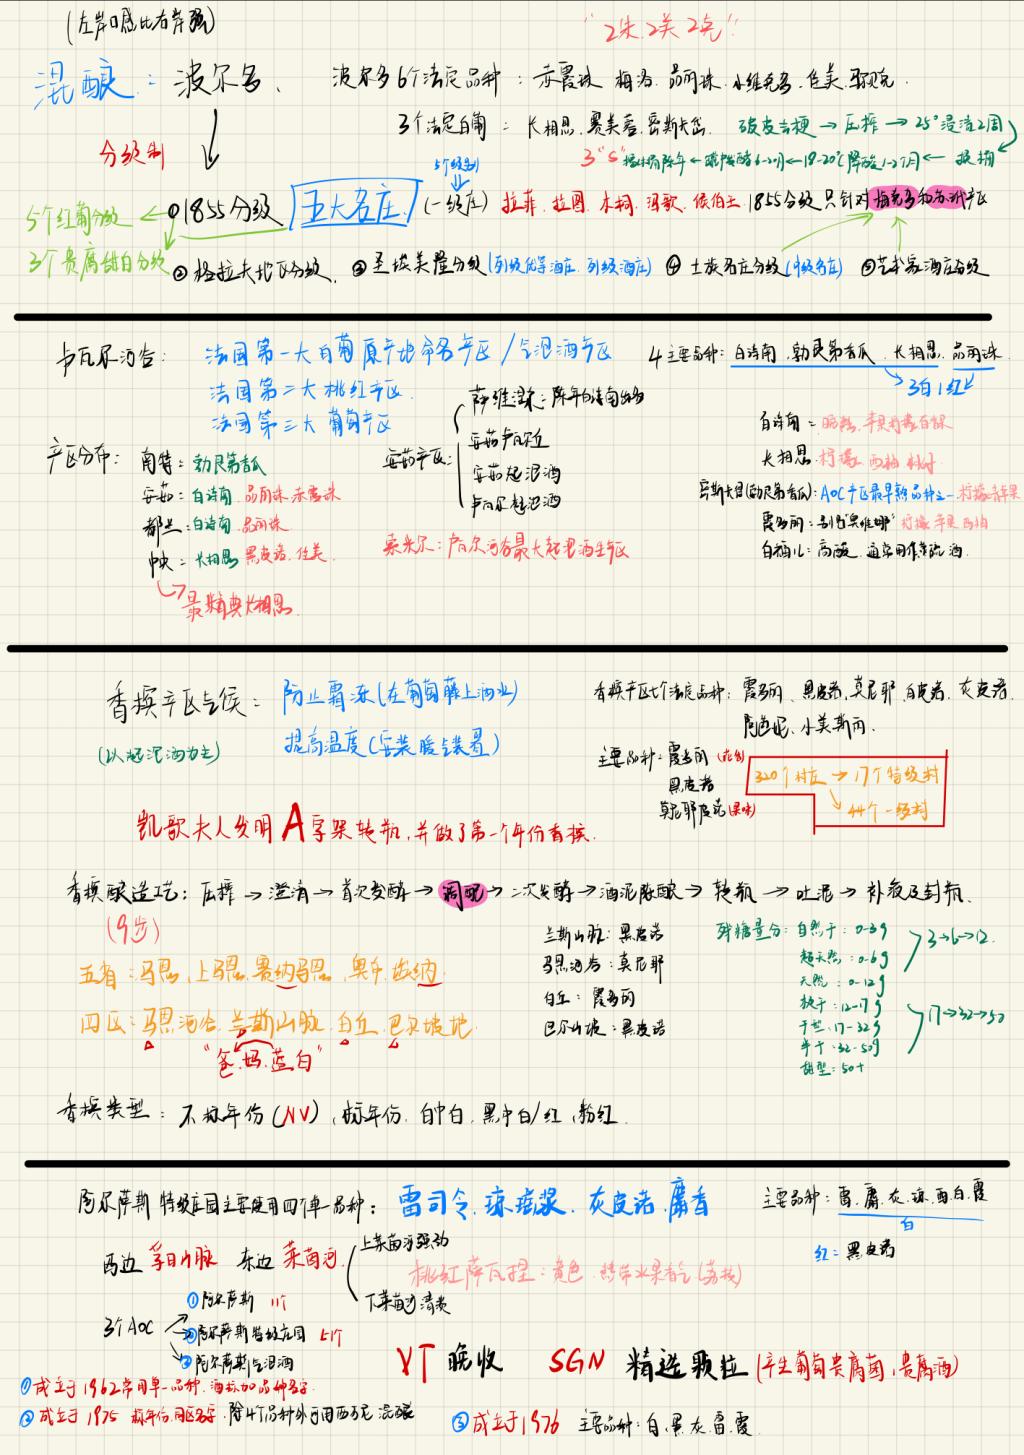 (左岸口感比右岸强)
“2朱.2美.2克”
混酿：波尔多、
波尔多6个法定品种：赤霞珠 梅洛.品丽珠.小维多.佳美.
3个法定白葡：长相思.赛美蓉.密斯卡岱.
破皮去梗→压榨→25°浸渍2周
分级制
5个级别
5个红葡分级
3个贵腐甜白分级
①1855分级
五大名庄.
(一级庄)
拉菲.拉图.木桐.玛歌.侯伯王
1855分级只针对梅克多和苏玳产区
②格拉夫地区分级.
③圣埃美隆分级(列级优等酒庄.列级酒庄)
④士族名庄分级(中级名庄)
⑤艺术家酒庄分级
卢瓦尔河谷：
法国第一大白葡原产地命名产区/气泡酒产区
法国第二大桃红产区.
法国第三大葡萄产区
4主要品种：白诗南.勃艮第香瓜.长相思.品丽珠
3白1红
产区分布：
南特：勃艮第香瓜
安茹：白诗南.品丽珠.赤霞珠
都兰：白诗南.品丽珠
中央：长相思 黑皮诺.佳美.
最经典长相思.
安茹产区：
萨维涅：陈年白诗南出名
安茹卢瓦尔丘
安茹起泡酒
卢瓦尔起泡酒
索米尔：卢瓦尔河谷最大起泡酒生产区
白诗南：
长相思.柠檬.西柚
密斯卡黛(勃艮第香瓜)：AOC产区最早熟品种之一.柠檬.青苹果
霞多丽：柠檬.苹果.西柚
高酸
香槟产区气候：
防止霜冻(在葡萄藤上洒水)
提高温度(安装暖气装置)
(以起泡酒为主)
香槟产区七个法定品种：霞多丽、黑皮诺.莫尼耶.白皮诺.灰皮诺.
阿芭妮、小美斯丽.
主要品种：霞多丽(花香)
黑皮诺
莫尼耶皮诺(果味)
320个村庄→17个特级村
44个一级村
凯歌夫人发明A字架转瓶,并做了第一个年份香槟.
香槟酿造工艺：压榨→澄清→首次发酵→调配→二次发酵→酒泥陈酿→转瓶→吐泥→补液及封瓶.
(9步)
五省：马恩,上马恩,塞纳马恩,奥布,埃纳
四区：马恩河谷.兰斯山脉.白丘.巴尔坡地.
“爸.妈.蓝白”
兰斯山脉：黑皮诺
马恩河谷：莫尼耶
白丘：霞多丽
巴尔山坡：黑皮诺
残糖量分：自然干：0-3g
超天然：0-6g
天然：0-12g
极干：12-17g
干型：17-32g
半干：32-50g
甜型：50+
3→6→12.
17→32→50
香槟类型：不标年份(NV),标年份.白中白,黑中白/红,粉红.
阿尔萨斯特级庄园主要使用四个单一品种：雷司令.琼瑶浆.灰皮诺.麝香
主要品种：雷.麝.灰.琼.西白.霞
白
红：黑皮诺
西边 孚日山脉 东边 莱茵河
上莱茵河强劲
下莱茵河清爽
3个AOC
①阿尔萨斯 11个
②阿尔萨斯特级庄园 51个
③阿尔萨斯气泡酒
VT 晚收 SGN 精选颗粒(产生葡萄贵腐菌,贵腐酒)
①成立于1962常用单一品种,酒标加品种名字.
②成立于1975
③成立于1976 主要品种：白.黑.灰.雷.霞